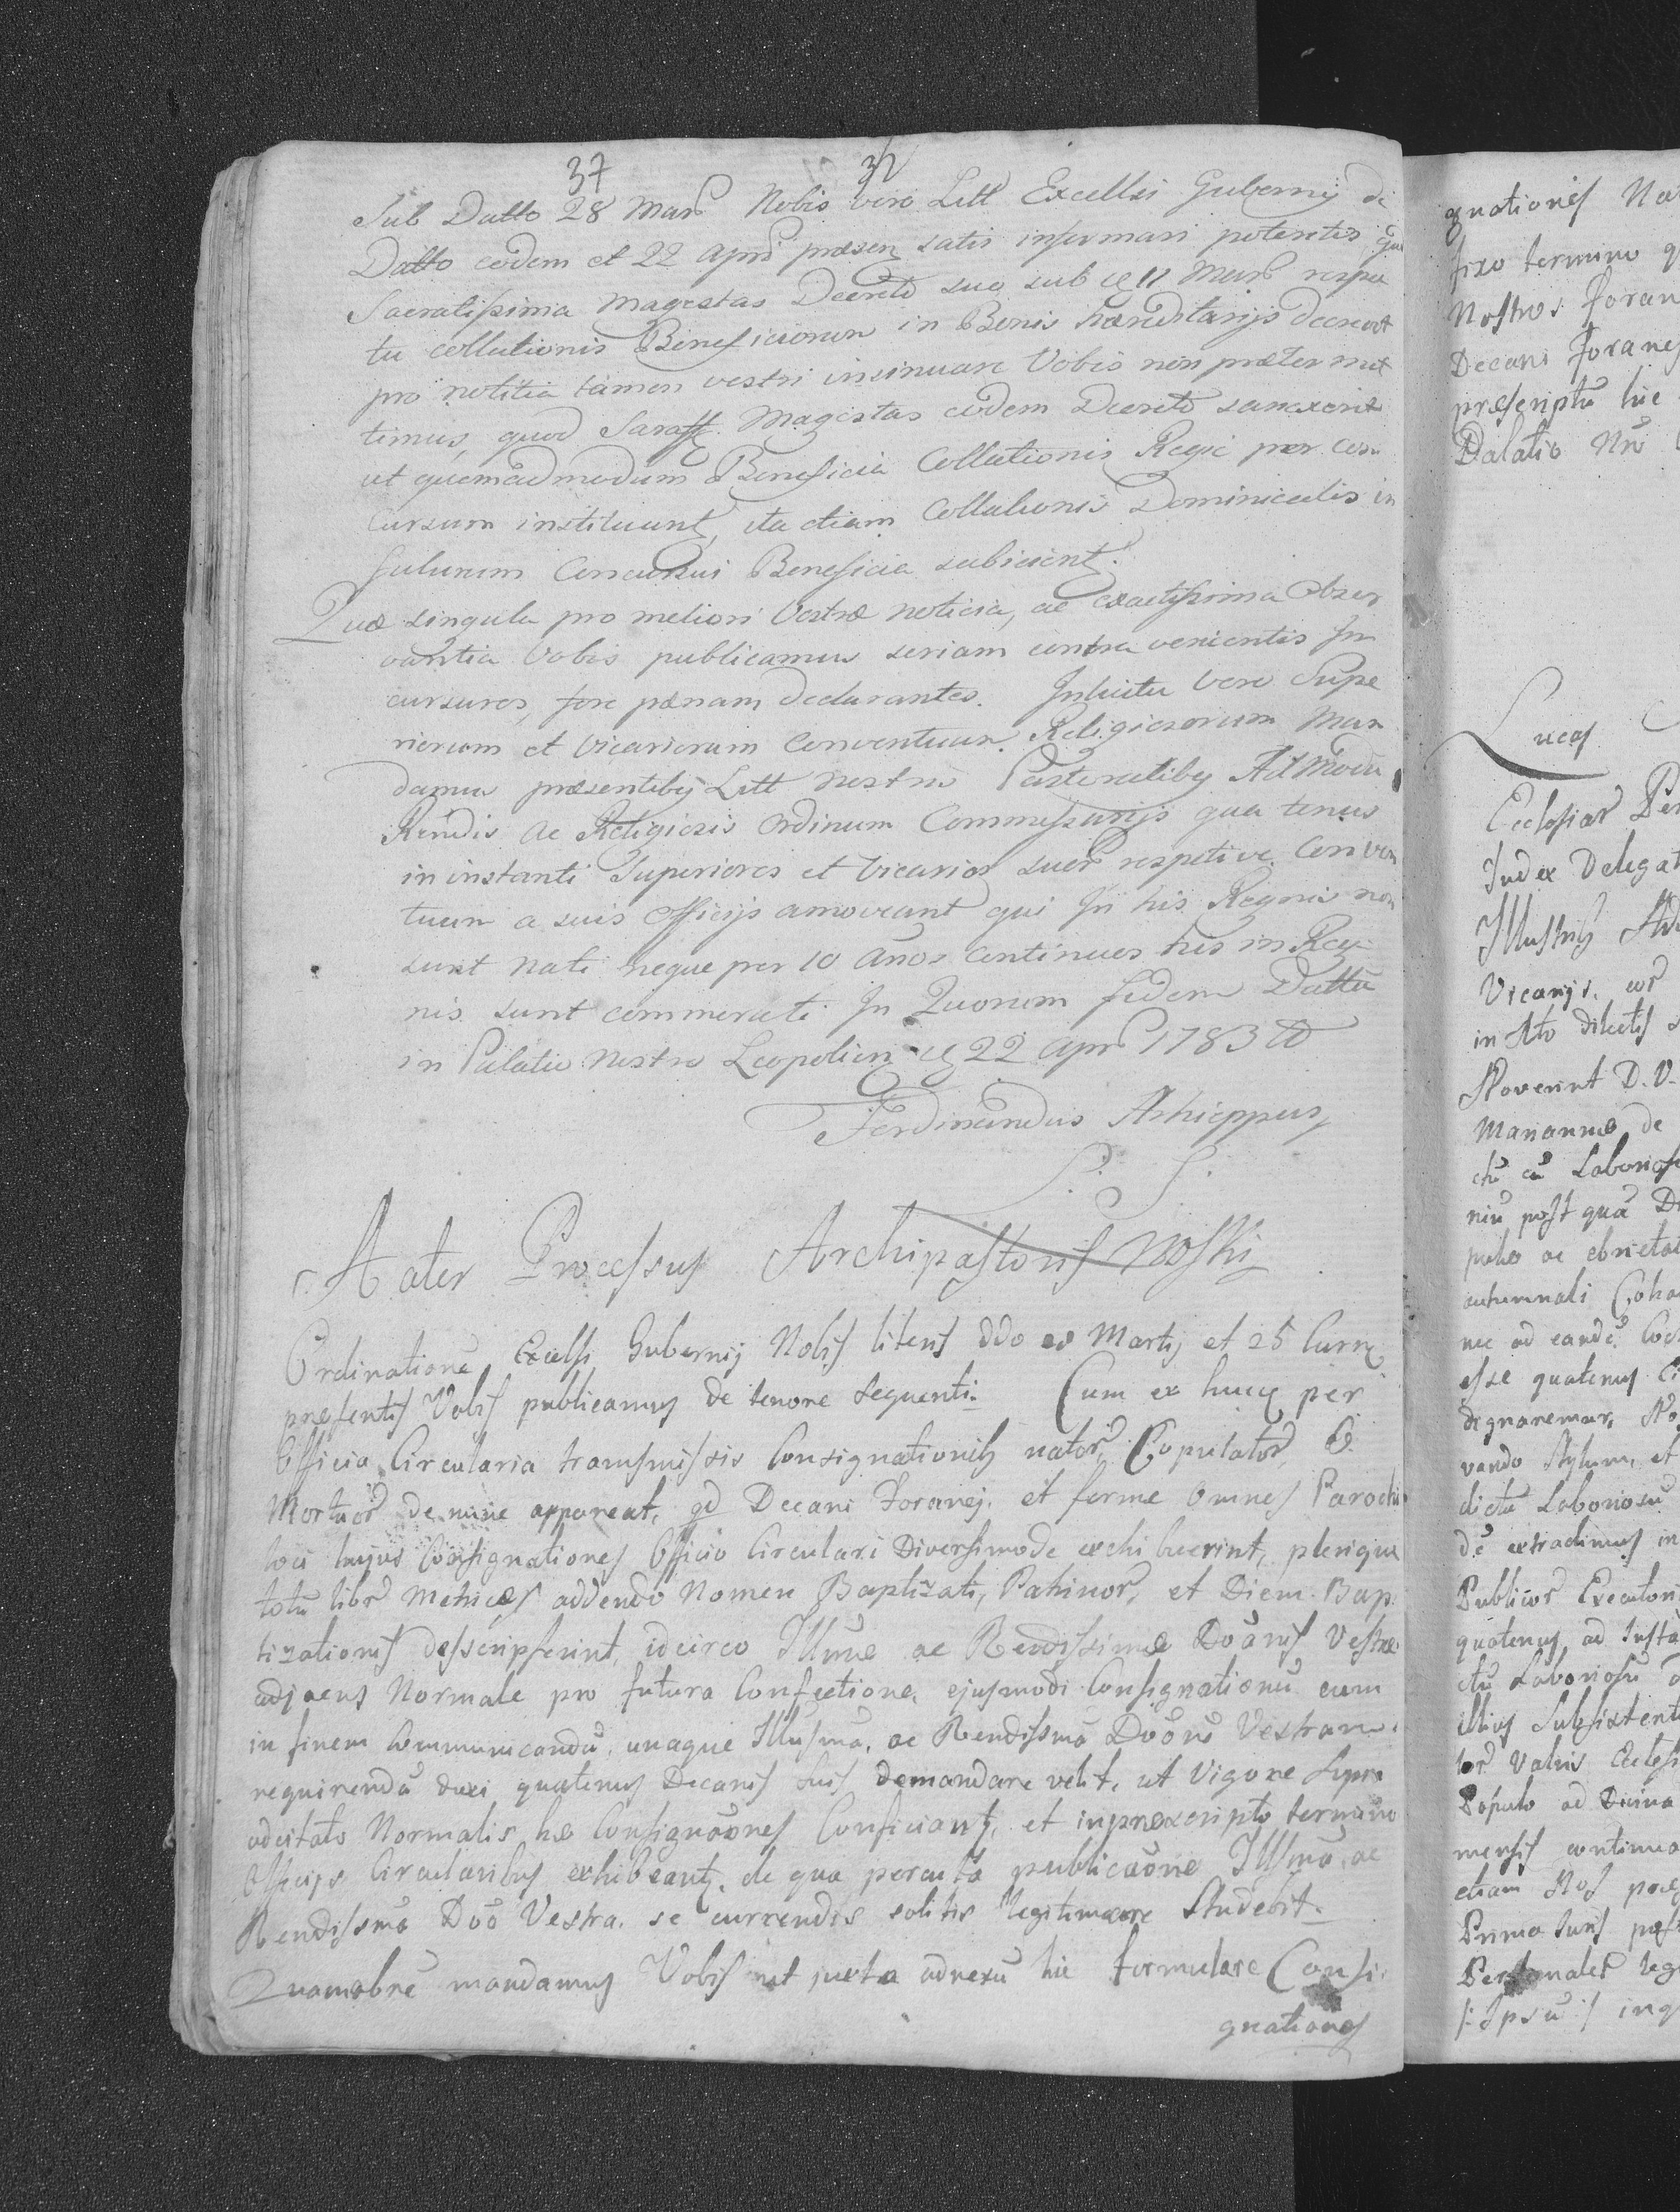 37 32
Sub Datto 28 Mar Nobis vero Litt Excelsi Gubernij de
Datto eodem et 22 Apri præsen satis informari poteritis qua
Sacratissima Magestas Decreto suo sub 11 Mar respe
tu collationis Beneficiorum in Bonis hæreditarijs decrevit
pro notitia tamen vestri insinuare Vobis non prætermit
timus, quod Saratt. Magestas eodem Decreto sanxerit
ut quemadmodum Beneficia Collationis Regie per con
cursum instituunt, ita etiam Collationis Dominicalis in
futurum Concursui Beneficia subiicient.
Quæ singula pro meliori Vestræ noticia, ac exactissima obser
vantia Vobis publicamus seriam contra venientis In
cursuros, fore pænam declarantes. Intuitu vero Supe
riorum et Vicariorum Conventuun. Religiosorum Man
damus præsentibus Litt nostris Pastoralibus Admodu
Rendis ac Religiosis Ordinum Commissarijs qua tenus
in instanti Superiores et Vicarios suor respetive Conven
tuun a suis officijs amoveant qui In his Regnis non
sunt nati neque per 10 Anos continuos his in Reg
nis sunt commorati In Quorum fidem Dattu
in Palatio Nostro Leopolien 22 Apr 1783
Ferdinandus Arhieppus
L. S.
Aater Processus Archipastoris Nostri
Ordinatione Excelsi Gubernij Nobis literis ddo 20 Martij et 25 Curr
presentis Vobis publicamus de tenore sequenti. Cum ex hucq per
Officia Circularia transmissis Consignationibus nator, Copulator, &
Mortuor de nune appareat, qd Decani Foranej. et ferme Omnes Parochi
loci hujus Consignationes Officio Circulari Diversimode exchi buerint, plerique
totu libr Metrices addendo Nomen Baptizati, Patrinor, et Diem Bap
tizationis desscripserint, idcirco Illmæ ac Rendissimæ Doanis Vestræ
adjacens Normale pro futura Confectione, ejusmodi Consignationu eum
in finem Communicandu, unaque Illusma. ac Rendissma Doone Vestram
requirenda duxi quatenus Decanis suis demandare velit, ut Vigore supra
adcitato Normalis hæ Consignaones Conficiant, et inpræscripto termino
Officijs Circularibus exhibeant, de qua peracta publicaone Illsma, ac
Rendissma Doo Vestra. se currendis solitis legitimare Studebit.
Quamobre mandamus Vobis ut juxta adnexu hic formulare Consi
gnationes

gnationes Na
fixo termino q
Nostros foran
Decani Foranej
prescriptu hic
Dalatis Nro

Lucas
Ecclesiar Per
Judex Delegat
Illustris
Vicarijs. eor
in Xto dilectis
Noverint D. V.
Mariannæ de
ctu cu Laborios
niu post qua
pulo ac ebrieta
autumnali Coha
nec ad eande. loc
esse quatenus Ci
dignaremur, No
vando Stylum, et
dictu Laboriosu
de extradimus in
Publicor Executor
quatenus ad Insta
ctu Laboriosu
illius Subsistent
lor Valvis Ecclesi
Populo ad Divina
mensis continua
etiam Nos præ
Primo Juris post
Personaler leg
/: Ipsu :/ inq